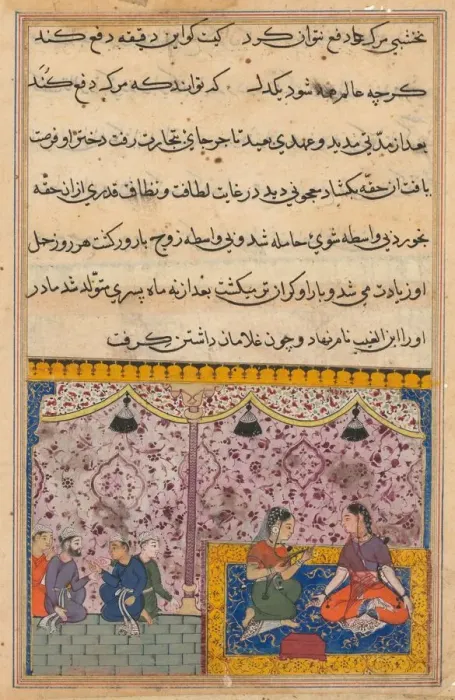 نخشبی مرک را دفع نتوان کرد کیت کو این دقیقه دفع کند
کرچه عالم همه شود یکدل که تواند که مرک دفع کند
بعد از مدّتی مدید و عهدی بعید تاجر جای بتجارت رفت دختر او فرصت
یافت آن حقّه بکشاد معجونی دید در غایت لطافت و نظافت قدری از ان حقه
بخورد بی واسطه شوی حامله شد و بی واسطه زوج بارور کشت هر روز حمل
او زیادت می شد و بار او کران تر میکشت بعد از نه ماه پسری متولّد شد مادر
او را ابن الغیب نام نهاد و چون غلامان داشتن کرفت